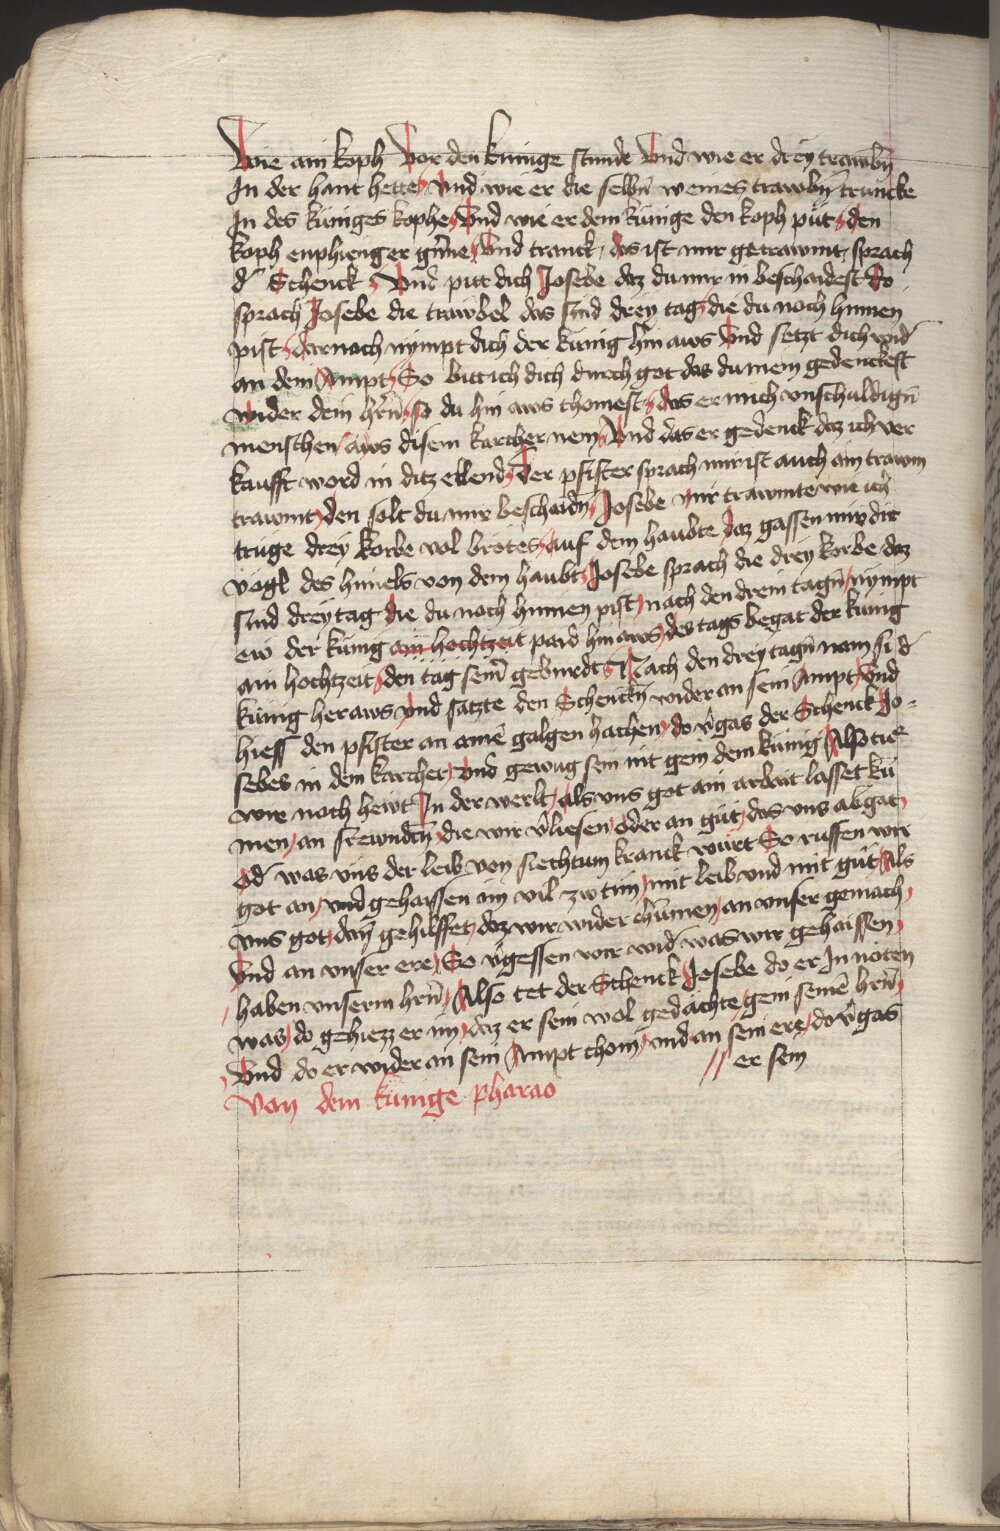 Wie ain koph Vor den kunige stunde Vnd wie er drey trawbn̄
In der hant hette Vnd wie er die selbn̄ weines trawbn̄ truncke
In des kuniges kophe Vnd wie er dem kunige den koph püt den
koph enphienger gerne Vnd tranck das ist mir getrawmt sprach
d' Schenck Vnd pitt dich Josebe daz du mir in beschaidest do
sprach Josebe die trawbel das sind drey tag die du noch hinnen
pist darnach nympt dich der künig hin aws Vnd setzt dich wid'
an dem Ampt So bitt ich dich durch got das du mein gedenckest
wider dein hrn̄ so du hin aws chomest das er mich vnschuldign̄
menschen aws disem karcher nem Vnd das er gedenck daz ich ver
kaufft word in ditz ellend Der pfister sprach mir ist auch ain trawm
trawmt den solt du mir beschaidn̄ Josebe mir trawmte wie ich
trüge drey korbe vol brotes auf dem haubte daz gassen mir die
vögl des himels von dem haubt Josebe sprach die drey korbe daz
sind drey tag die du noch hinnen pist nach den drein tagn̄ nympt
ew der künig ain hochtzeit paid hin aws des tags begat der künig
ain hochtzeit den tag seiner gebürdt Nach den drey tagn̄ nam si d'
künig heraws Vnd satzte den Schenckn̄ wider an sein Ampt Vnd
hiess den pfister an aine galgen hachen do v'gas der Schenck Jo-
sebes in dem karcher Vnd gewug sein nit gem dem künig Also tue
wir noch hewt In der werlt als vns got ain arbait lasset ku
men an frewndtn̄ die wir v'liesen oder an güt das vns abgat
od' was vns der leib von siechtum kranck würt So ruffen wir
got an vnd gehaissen im vil zw tun mit leib vnd mit güt Als
vns got dan̄ gehilffet daz wir wider chumen an vnser gemach
Vnd an vnser ere So v'gessen wir wid' was wir gehaissen
haben vnserm hrn̄ Also tet der Schenck Josebe do er In nöten
was do gehiezz er im daz er sein wol gedächte gein seine hrn̄
Vnd do er wider an sein Ampt chom vnd an sein ere do v'gas
// er sein
Von dem künige pharao